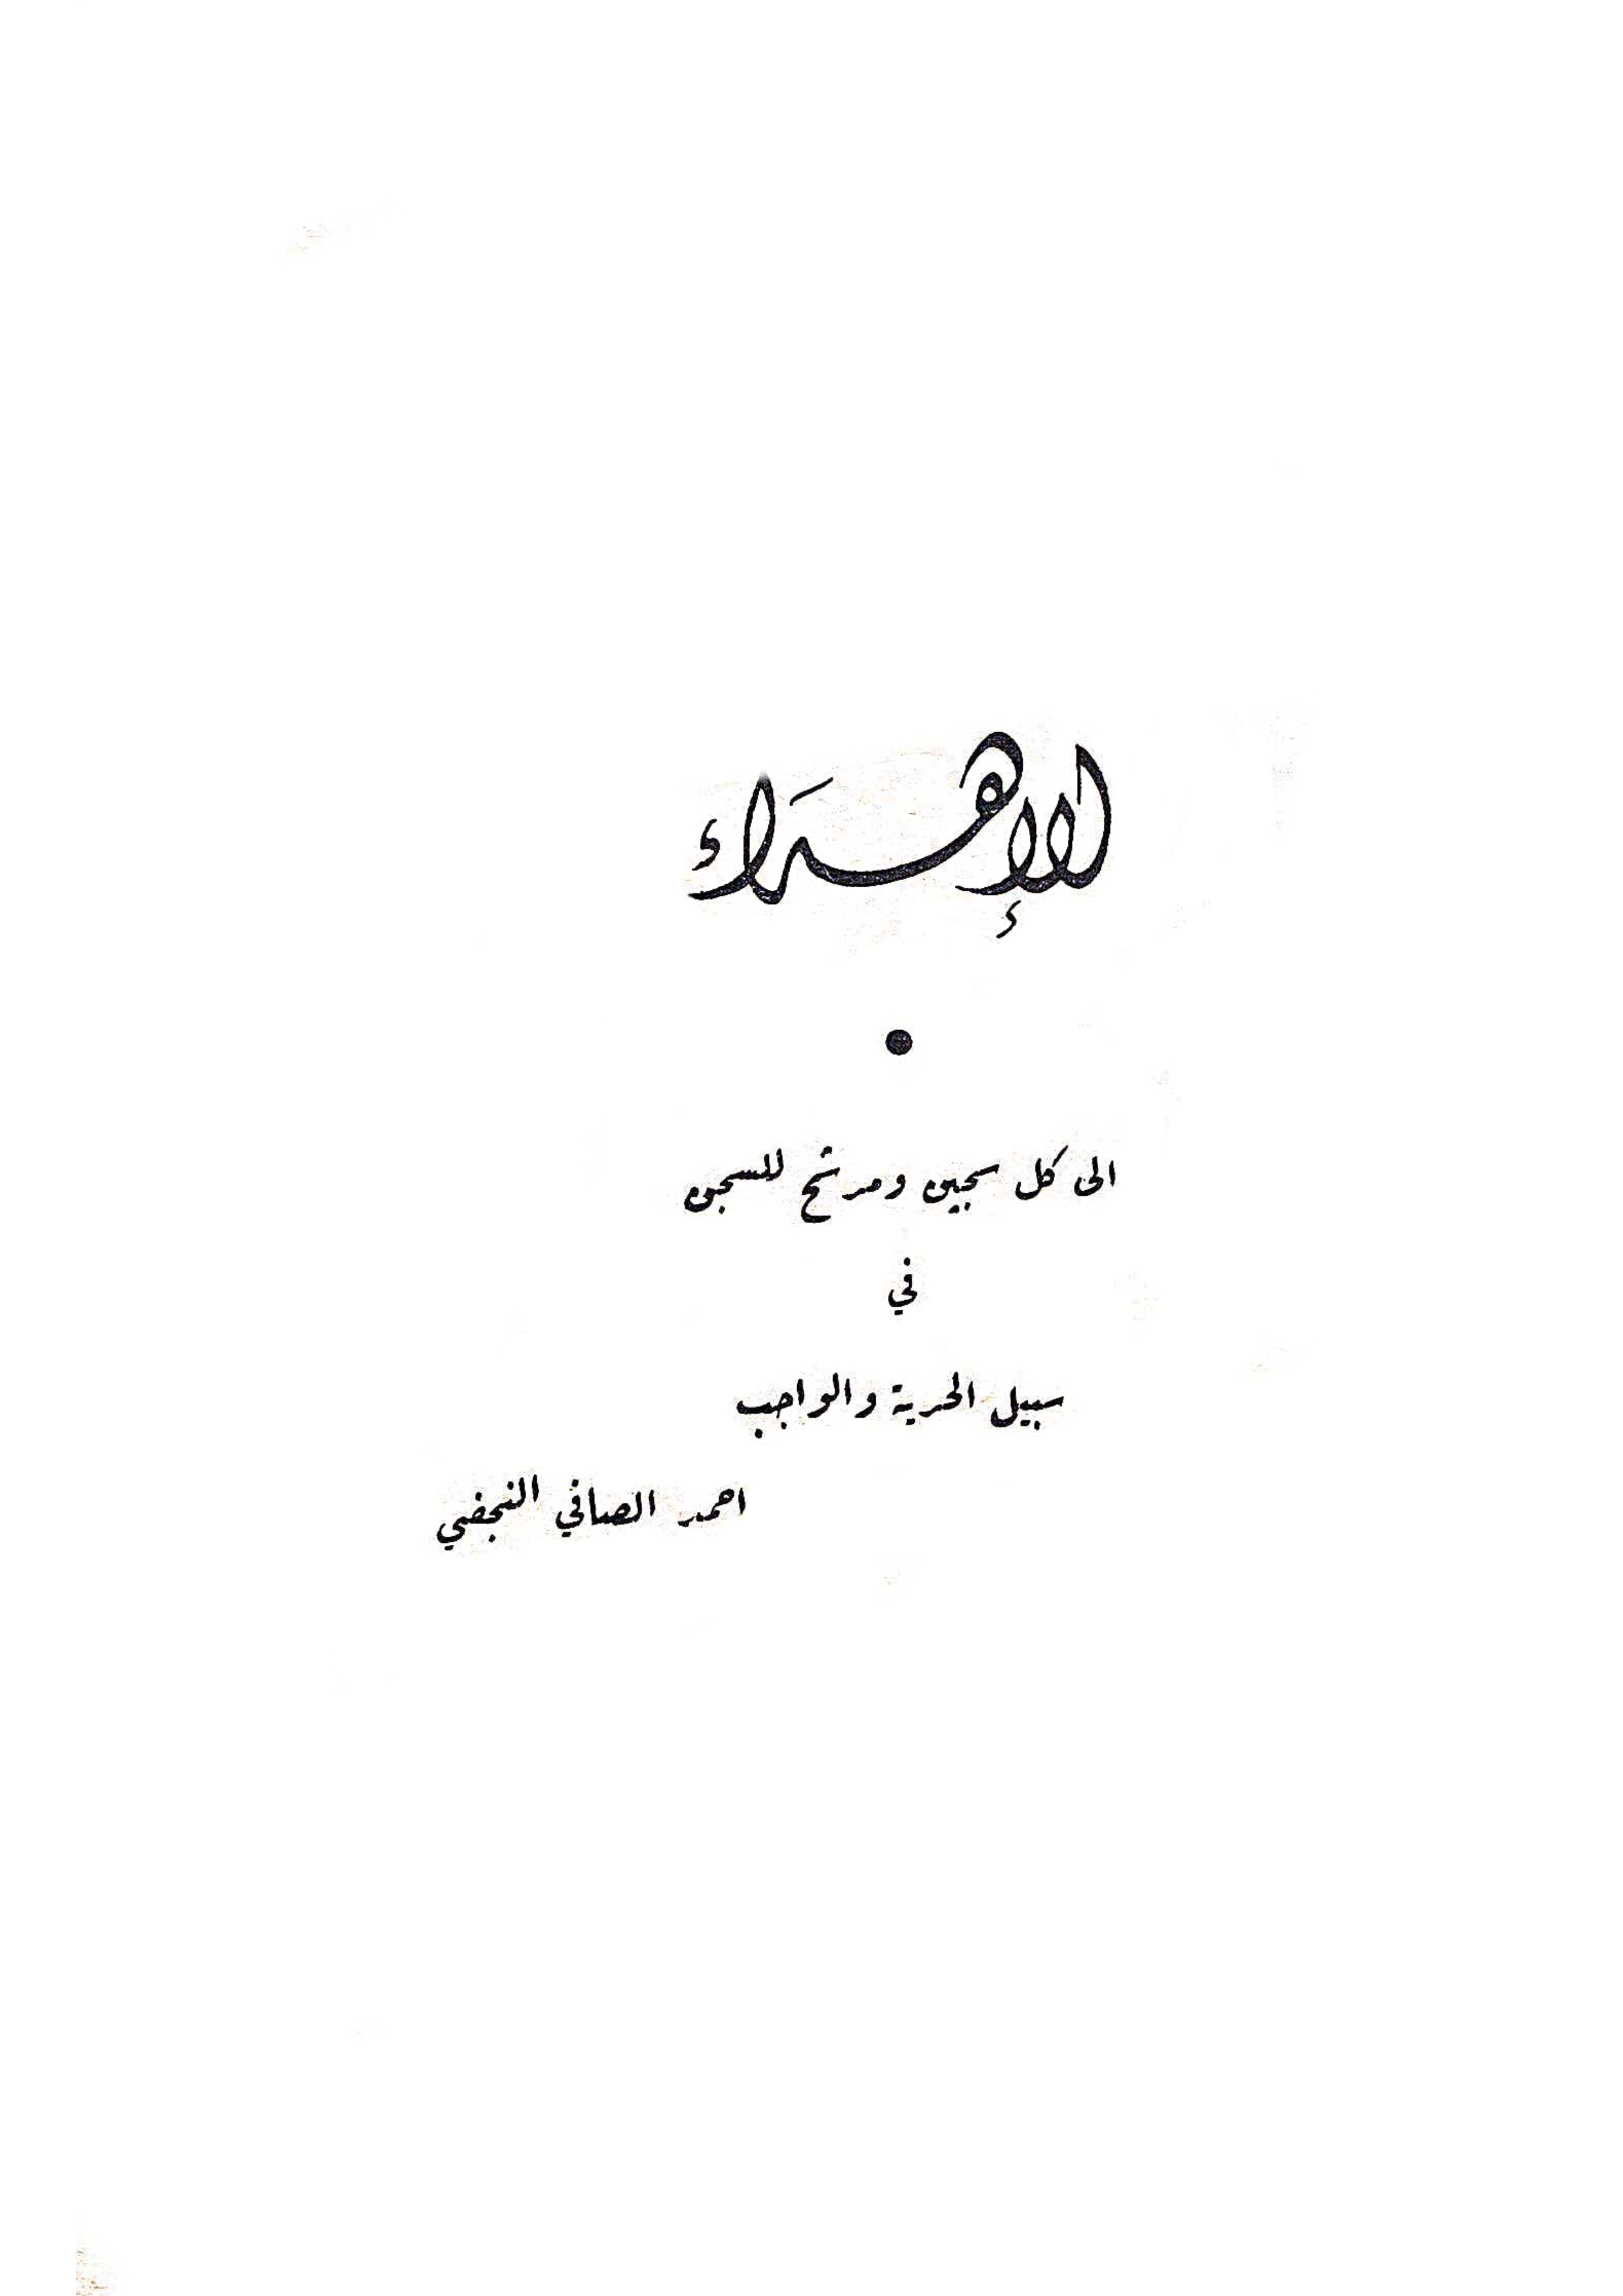 الإهداء
●
الى كل سجين ومرشح للسجن
في
سبيل الحرية والواجب
احمد الصافي النجفي